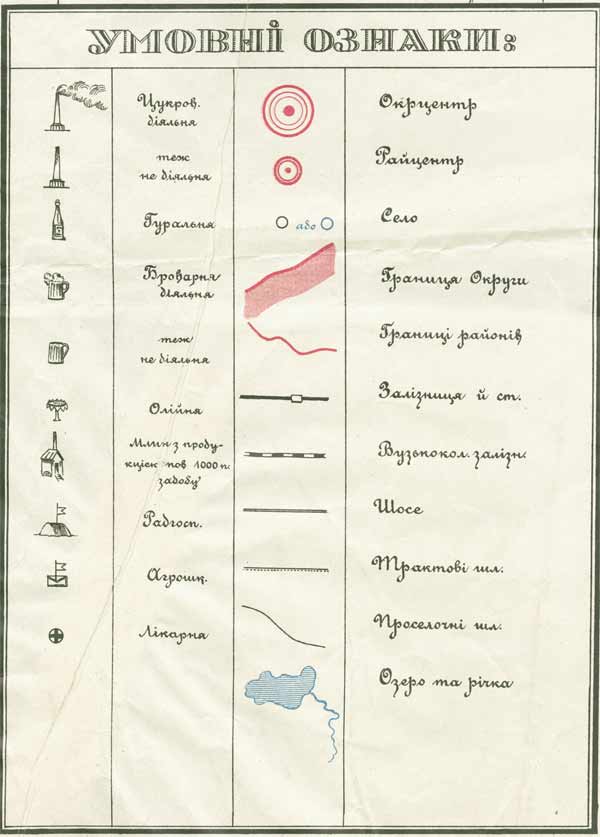 УМОВНІ ОЗНАКИ:
Цукров.
діяльна
теж
не діяльна
Гуральня
Броварня
діяльня
теж
не діяльна
Олійня
Млин з проду-
кцієй пов 1000 п.
задобу
Радгосп.
Агрошк.
Лікарня
Окрцентр
Райцентр
або
Село
Границя Округи
Границі районів
Залізниця й ст.
Вузькокол. залізн.
Шосе
Трактові шл.
Проселочні шл.
Озеро та річка